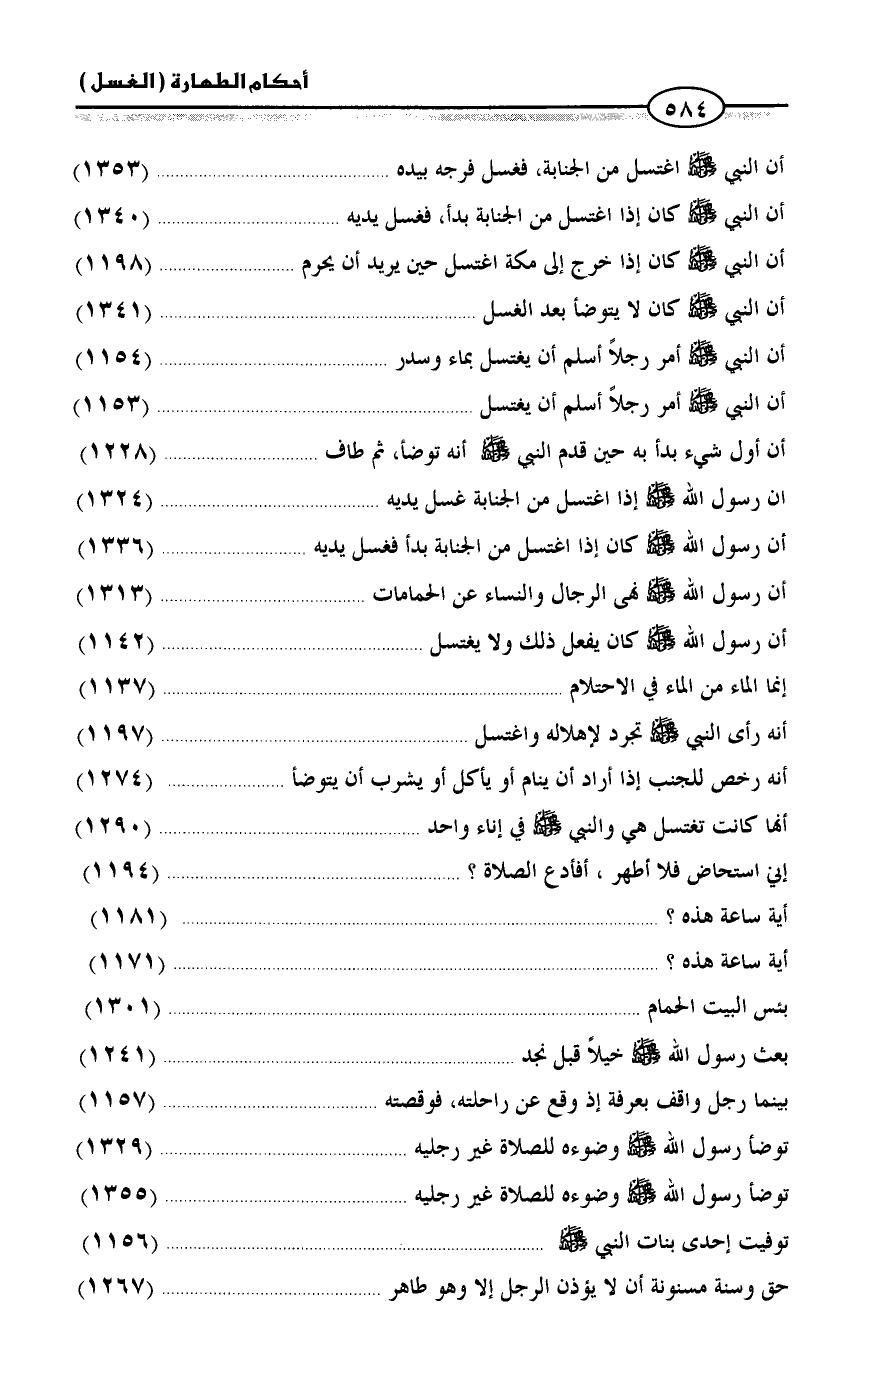 أحكام الطهارة (الغسل)
٥٨٤
أن النبي ﷺ اغتسل من الجنابة، فغسل فرجه بيده ........ (١٣٥٣)
أن النبي ﷺ كان إذا اغتسل من الجنابة بدأ، فغسل يديه ........ (١٣٤٠)
أن النبي ﷺ كان إذا خرج إلى مكة اغتسل حين يريد أن يحرم ........ (١١٩٨)
أن النبي ﷺ كان لا يتوضأ بعد الغسل ........ (١٣٤١)
أن النبي ﷺ أمر رجلاً أسلم أن يغتسل بماء وسدر ........ (١١٥٤)
أن النبي ﷺ أمر رجلاً أسلم أن يغتسل ........ (١١٥٣)
أن أول شيء بدأ به حين قدم النبي ﷺ أنه توضأ، ثم طاف ........ (١٢٢٨)
ان رسول الله ﷺ إذا اغتسل من الجنابة غسل يديه ........ (١٣٢٤)
أن رسول الله ﷺ كان إذا اغتسل من الجنابة بدأ فغسل يديه ........ (١٣٣٦)
أن رسول الله ﷺ نهى الرجال والنساء عن الحمامات ........ (١٣١٣)
أن رسول الله ﷺ كان يفعل ذلك ولا يغتسل ........ (١١٤٢)
إنما الماء من الماء في الاحتلام ........ (١١٣٧)
أنه رأى النبي ﷺ تجرد لإهلاله واغتسل ........ (١١٩٧)
أنه رخص للجنب إذا أراد أن ينام أو يأكل أو يشرب أن يتوضأ ........ (١٢٧٤)
أنها كانت تغتسل هي والنبي ﷺ في إناء واحد ........ (١٢٩٠)
إني استحاض فلا أطهر ، أفأدع الصلاة ؟ ........ (١١٩٤)
أية ساعة هذه ؟ ........ (١١٨١)
أية ساعة هذه ؟ ........ (١١٧١)
بئس البيت الحمام ........ (١٣٠١)
بعث رسول الله ﷺ خيلاً قبل نجد ........ (١٢٤١)
بينما رجل واقف بعرفة إذ وقع عن راحلته، فوقصته ........ (١١٥٧)
توضأ رسول الله ﷺ وضوءه للصلاة غير رجليه ........ (١٣٢٩)
توضأ رسول الله ﷺ وضوءه للصلاة غير رجليه ........ (١٣٥٥)
توفيت إحدى بنات النبي ﷺ ........ (١١٥٦)
حق وسنة مسنونة أن لا يؤذن الرجل إلا وهو طاهر ........ (١٢٦٧)